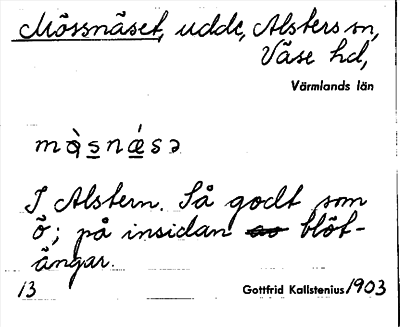 Mössnäset, udde, Alsters sn,
Väse hd,
Värmlands län
mɑ̀snǽsə
I Alstern. Så godt som
ö; på insidan blöt-
ängar.
13 Gottfrid Kallstenius 1903